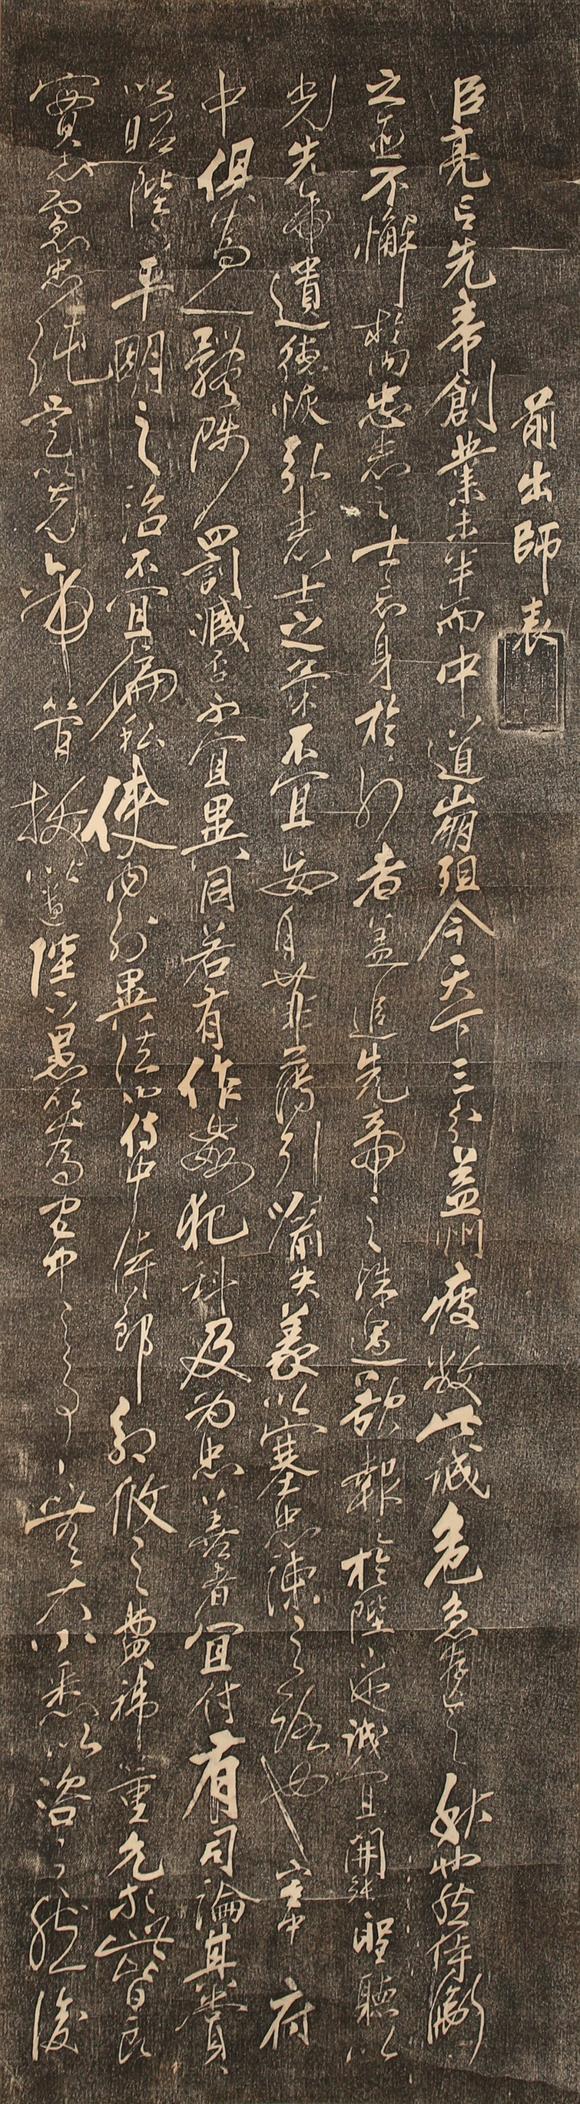 前出師表
臣亮言先帝創業未半而中道崩殂今天下三分益州疲敝此誠危急存亡之秋也然侍衛
之臣不懈於內忠志之士忘身於外者蓋追先帝之殊遇欲報於陛下也誠宜開張聖聽以
光先帝遺德恢弘志士之氣不宜妄自菲薄引喻失義以塞忠諫之路也宮中府
中俱為一體陟罰臧否不宜異同若有作姦犯科及為忠善者宜付有司論其賞
以昭陛下平明之治不宜偏私使內外異法也侍中侍郎郭攸之費禕董允等此皆良
實志慮忠純是以先帝簡拔以遺陛下愚以為宮中之事事無大小悉以咨之然後